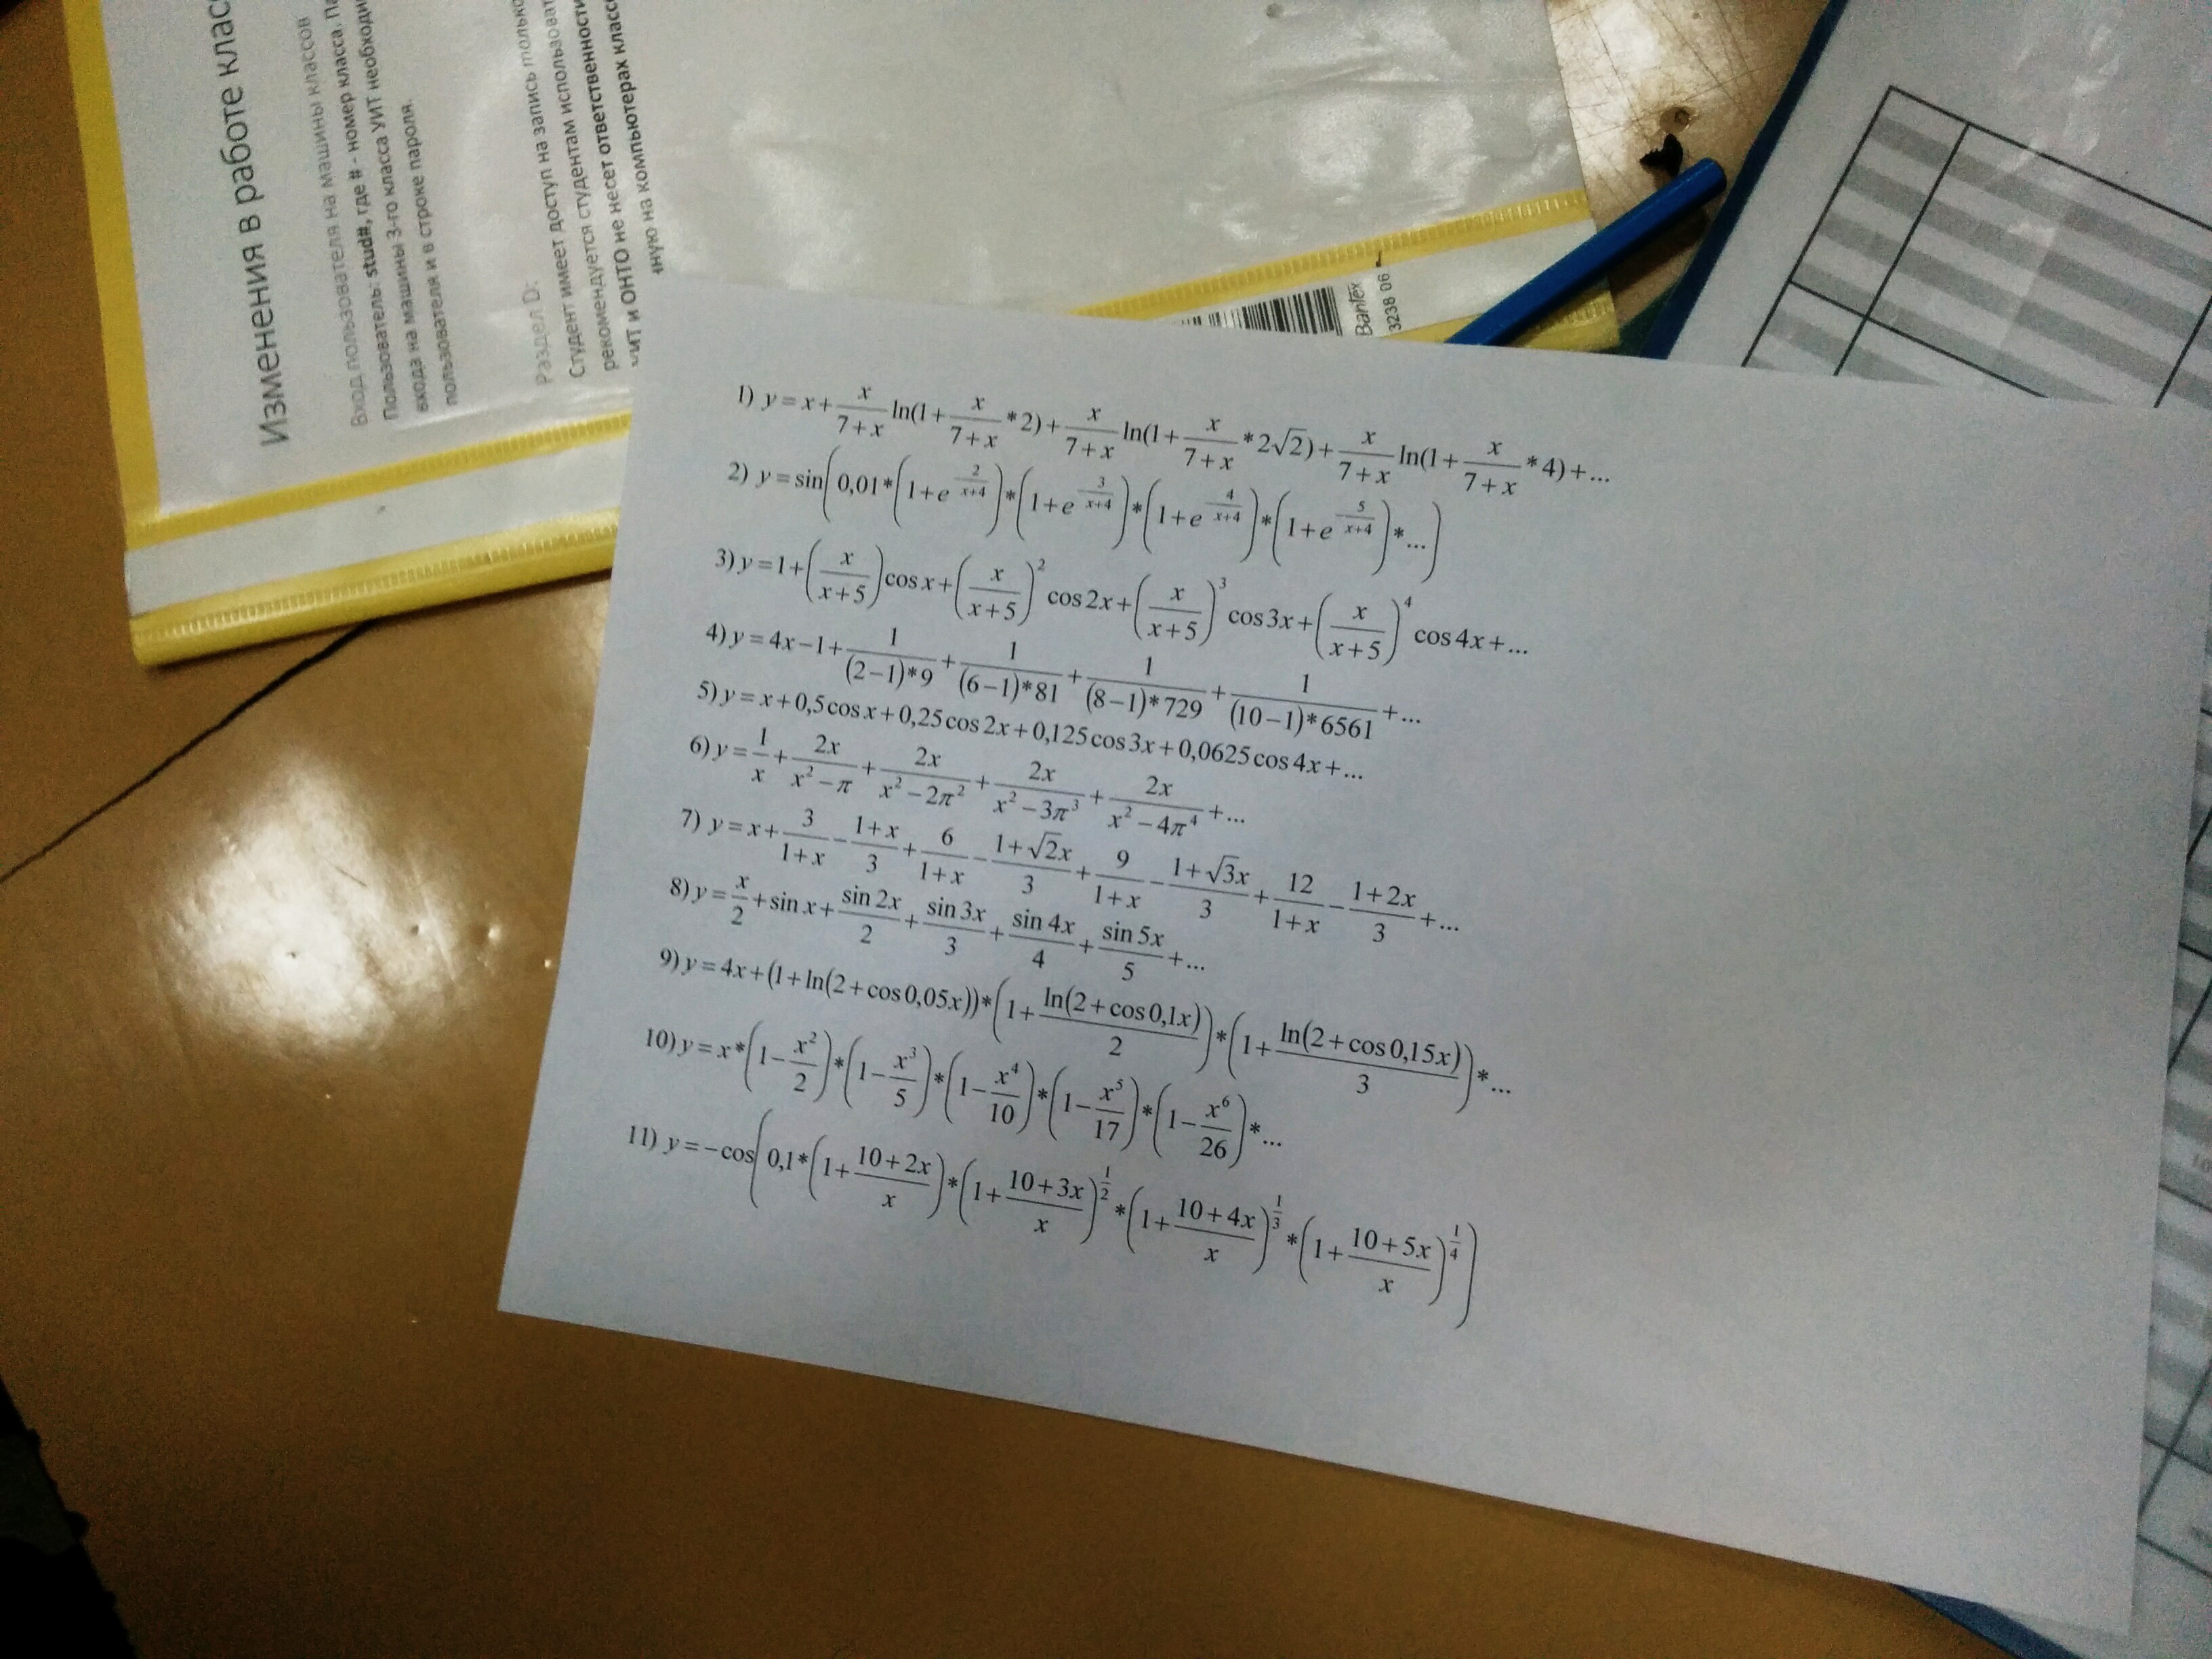 Изменения в работе клас
Вход пользователя на машины классов
Пользователь: stud#, где # - номер класса. Па
Пользователь 3-го класса УИТ необходи
входа на машины
пользователя и в строке пароля.
Раздел D:
Студент имеет доступ на запись только
рекомендуется студентам использоват
УИТ и ОНТО не несет ответственности
нную на компьютерах класс
Bantex
3238 06
1) y = x + x/(7+x) ln(1 + x/(7+x) * 2) + x/(7+x) ln(1 + x/(7+x) * 2√2) + x/(7+x) ln(1 + x/(7+x) * 4) + ...
2) y = sin(0,01 * (1 + e^(-2/(x+4))) * (1 + e^(-3/(x+4))) * (1 + e^(-4/(x+4))) * (1 + e^(-5/(x+4))) * ...)
3) y = 1 + (x/(x+5)) cos x + (x/(x+5))^2 cos 2x + (x/(x+5))^3 cos 3x + (x/(x+5))^4 cos 4x + ...
4) y = 4x − 1 + 1/((2−1)*9) + 1/((6−1)*81) + 1/((8−1)*729) + 1/((10−1)*6561) + ...
5) y = x + 0,5 cos x + 0,25 cos 2x + 0,125 cos 3x + 0,0625 cos 4x + ...
6) y = 1/x + 2x/(x^2 − π) + 2x/(x^2 − 2π^2) + 2x/(x^2 − 3π^3) + 2x/(x^2 − 4π^4) + ...
7) y = x + 3/(1+x) − (1+x)/3 + 6/(1+x) − (1+√2x)/3 + 9/(1+x) − (1+√3x)/3 + 12/(1+x) − (1+2x)/3 + ...
8) y = x/2 + sin x + sin 2x/2 + sin 3x/3 + sin 4x/4 + sin 5x/5 + ...
9) y = 4x + (1 + ln(2 + cos 0,05x)) * (1 + ln(2 + cos 0,1x)/2) * (1 + ln(2 + cos 0,15x)/3) * ...
10) y = x * (1 − x^2/2) * (1 − x^3/5) * (1 − x^4/10) * (1 − x^5/17) * (1 − x^6/26) * ...
11) y = −cos(0,1 * (1 + (10+2x)/x) * (1 + (10+3x)/x)^(1/2) * (1 + (10+4x)/x)^(1/3) * (1 + (10+5x)/x)^(1/4))